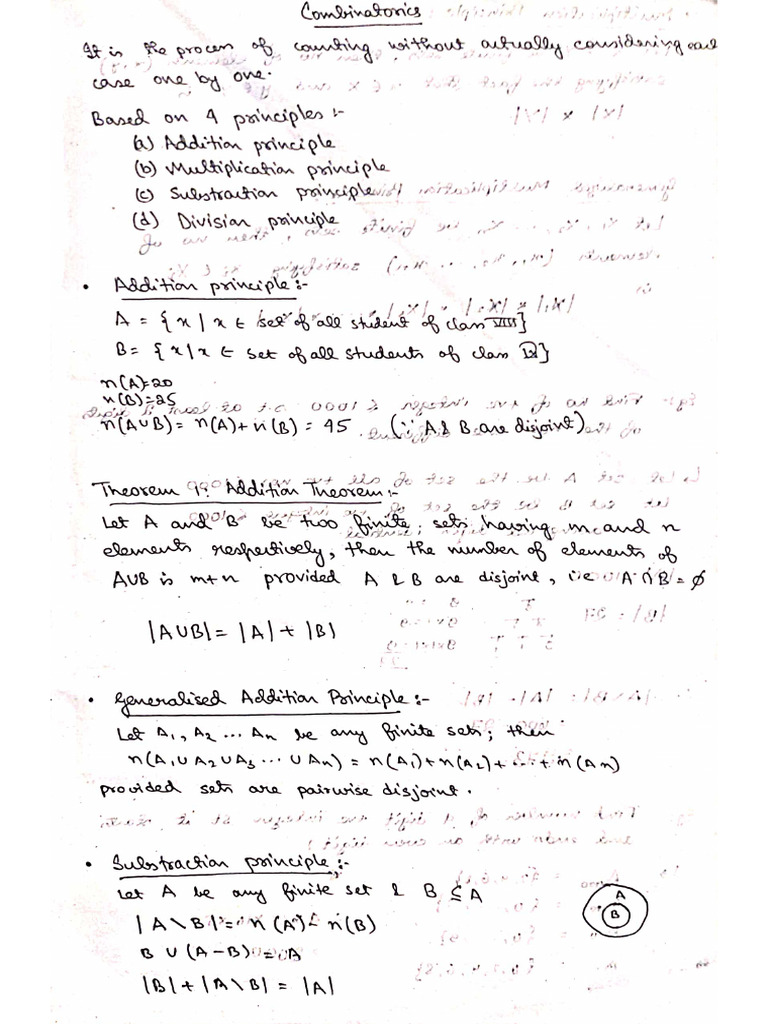 Combinatorics
It is the process of counting without actually considering each
case one by one.
Based on 4 principles :-
(a) Addition principle
(b) Multiplication principle
(c) Substraction principle
(d) Division principle
• Addition principle :-
A = { x | x ∈ set of all student of class VIII }
B = { x | x ∈ set of all students of class IX }
n(A) = 20
n(B) = 25
n(A∪B) = n(A) + n(B) = 45 (∵ A & B are disjoint)
Theorem 1: Addition Theorem :-
Let A and B be two finite sets having m and n
elements respectively, then the number of elements of
A∪B is m+n provided A & B are disjoint, i.e A∩B = ϕ
|A∪B| = |A| + |B|
• Generalised Addition Principle :-
Let A₁, A₂ ... Aₙ be any finite sets, then
n(A₁ ∪ A₂ ∪ A₃ ... ∪ Aₙ) = n(A₁) + n(A₂) + ... + n(Aₙ)
provided sets are pairwise disjoint.
• Substraction principle :-
Let A be any finite set & B ⊆ A
|A \ B| = n(A) - n(B)
B ∪ (A - B) = A
|B| + |A \ B| = |A|
A
B